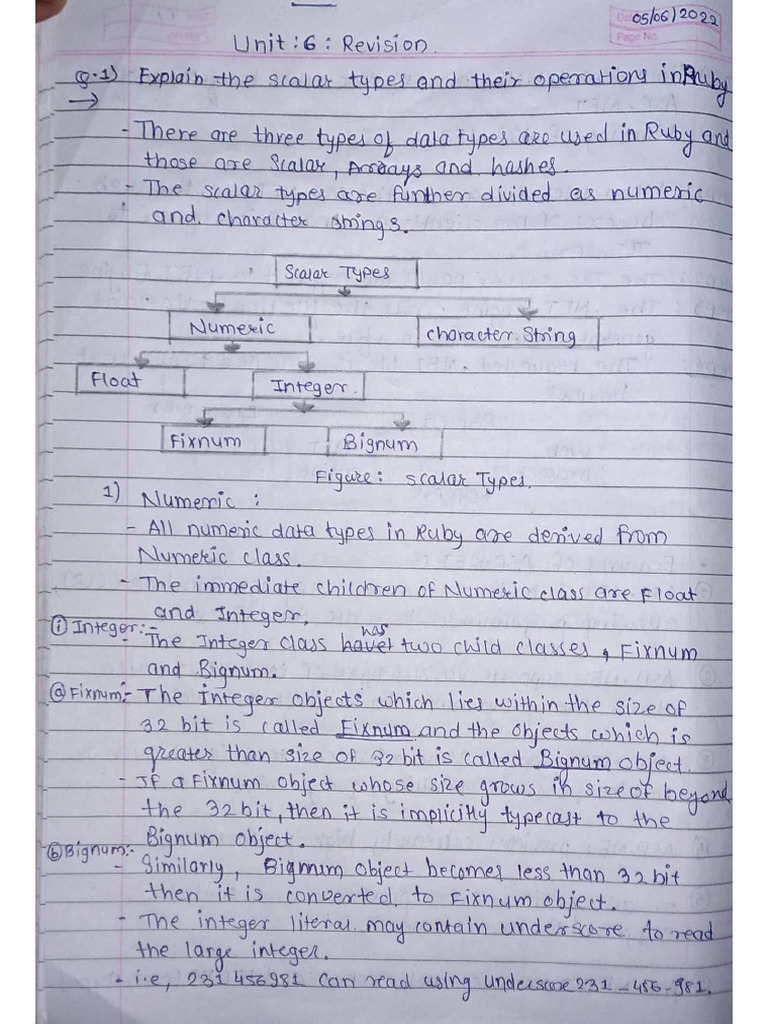 05/06/2022
Page No.
Unit : 6 : Revision.
Q.1) Explain the scalar types and their operations in Ruby
→
- There are three types of data types are used in Ruby and
those are Scalar, Arrays and hashes.
- The scalar types are further divided as numeric
and character strings.
Scalar Types
Numeric
Character String
Float
Integer.
Fixnum
Bignum
Figure: Scalar Types.
1) Numeric :
- All numeric data types in Ruby are derived from
Numeric class.
- The immediate children of Numeric class are Float
and Integer.
has
① Integer:- - The Integer class have two child classes, Fixnum
and Bignum.
ⓐ Fixnum:- - The integer objects which lies within the size of
32 bit is called Fixnum and the objects which is
greater than size of 32 bit is called Bignum object.
- If a Fixnum object whose size grows in size of beyond
the 32 bit, then it is implicitly typecast to the
Bignum object.
ⓑ Bignum:- - Similarly, Bignum object becomes less than 32 bit
then it is converted to Fixnum object.
- The integer literal may contain underscore to read
the large integer.
- i.e, 231456981 can read using underscore 231_456_981.